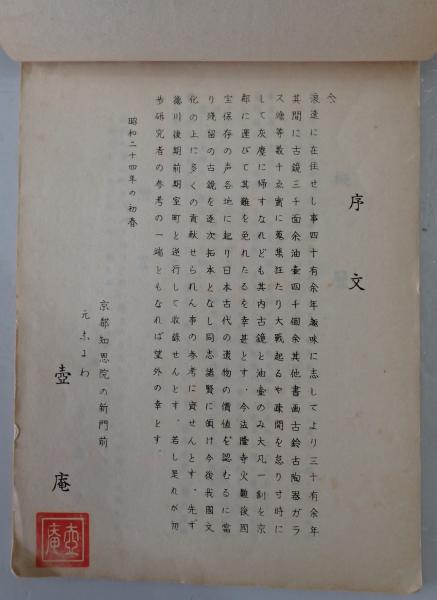 序文
浪速に在住せし事四十有余年趣味に志してより三十有余年
其間に古鏡三千面余油壷四千個余其他書画古鈴古陶器ガラ
ス燈等数千点蒐集狂たり大戦起るや疎開を怠り寸時に
して灰塵に帰すなれども其内古鏡と油壷のみ大凡一割を京
都に運びて其難を免れたるを幸甚とす、今法隆寺火難後国
宝保存の声各地に起り日本古代の遺物の価値を認むるに当
り残留の古鏡を逐次拓本となし同志諸賢に頒け今後我国文
化の上に多くの貢献せられん事の参考に資せんとす、先ず
徳川後期前期室町と逆行して収録せんとす、若し是れが初
歩研究者の参考の一端ともなれば望外の幸とす、
昭和二十四年の初春
京都知恩院の新門前
元奈にわ
壺庵
壺庵